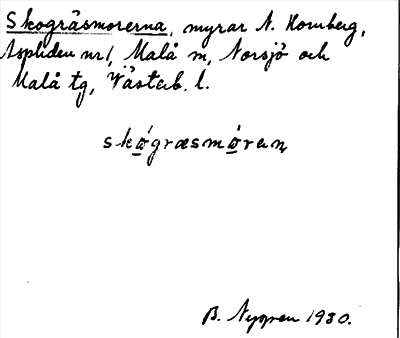 Skogräsmorerna, myrar N. Hornberg,
Aspliden nr 1, Malå sn, Norsjö och
Malå tg, Västerb. l.
skógræsmóran
B. Nygren 1930.